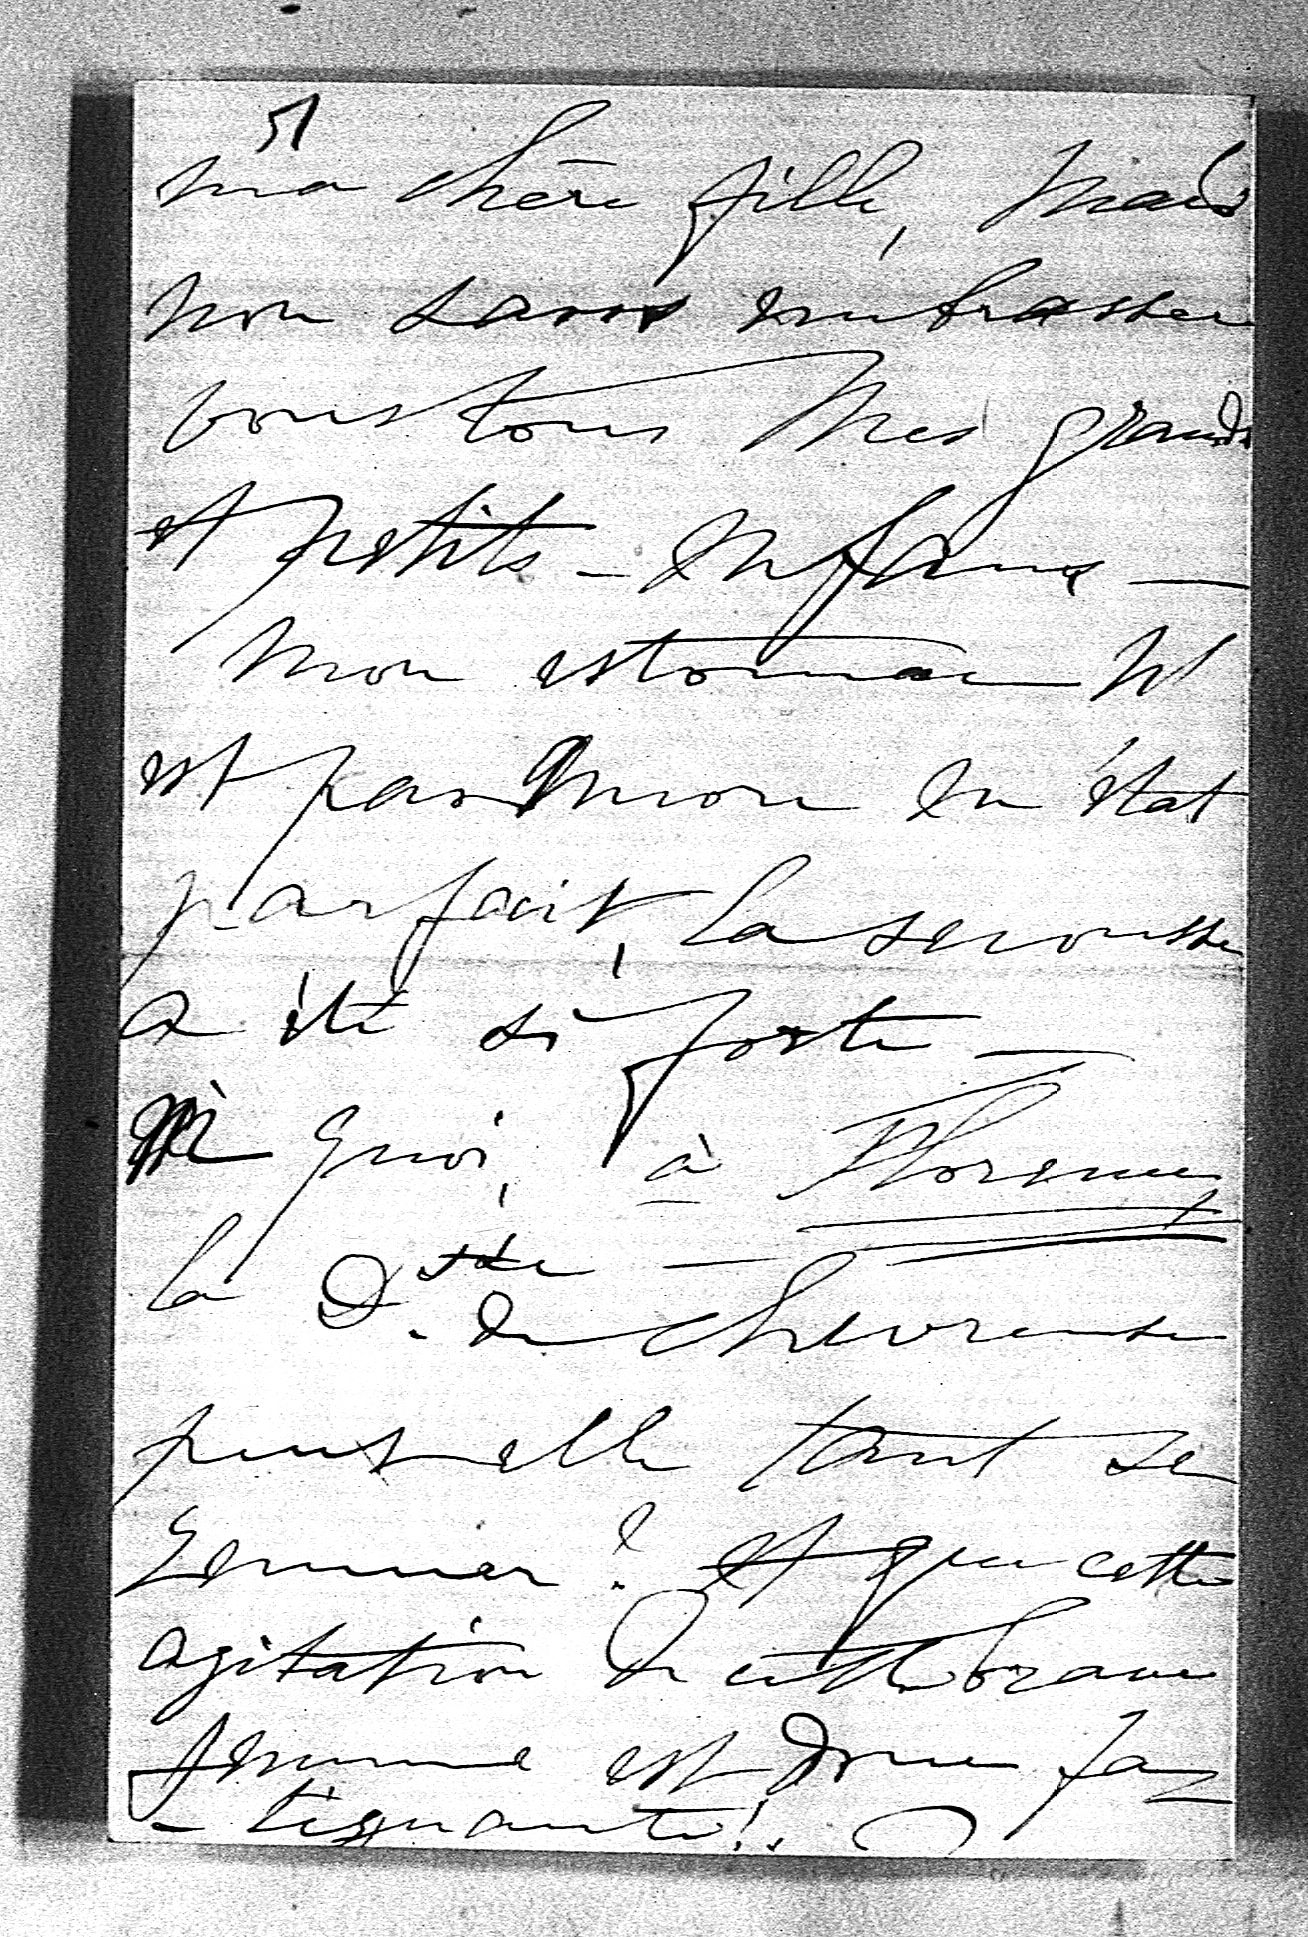 5
ma chère fille, Mais
non sans embrasser
vous tous Mes grands
et petits - Enfans —
Mon estomac N'
est pas Mon en état
parfait, la secousse
a été si forte —
quoi, à Florence
la D.sse — de Chevreuse
peut elle tant se
remuer? Et que cette
agitation de cette brave
femme est donc fa
- tiguante!.